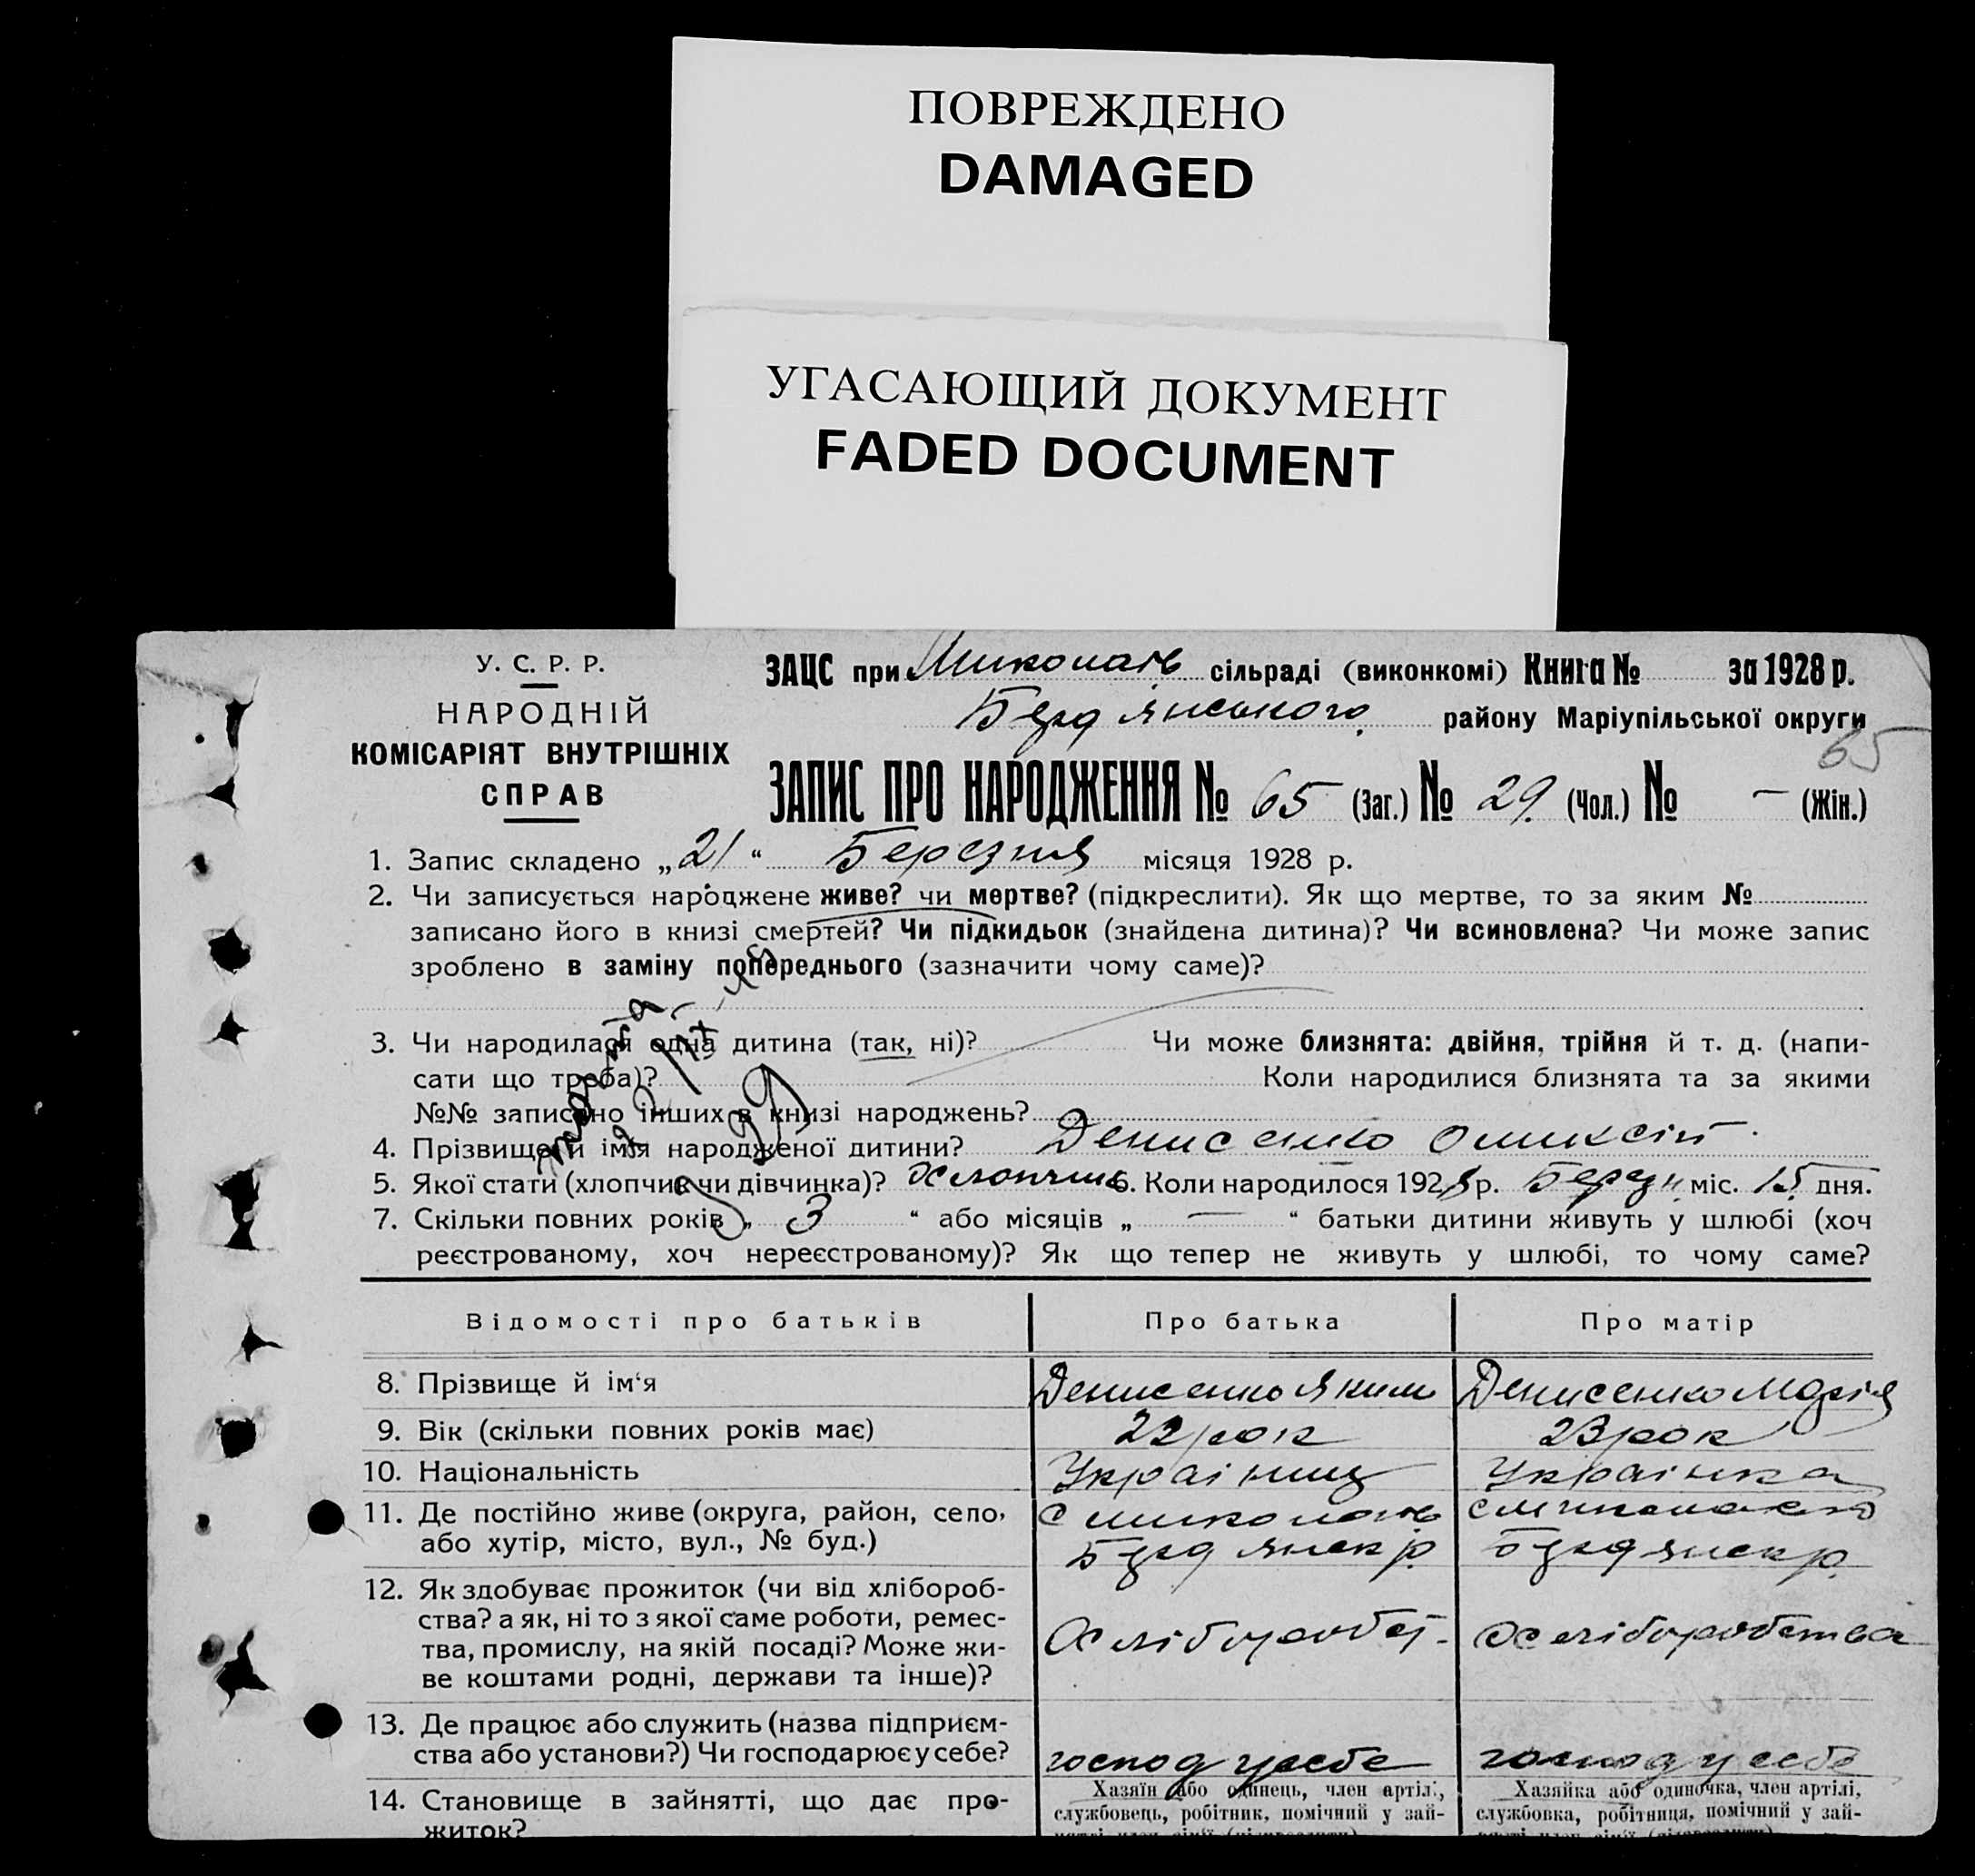 ПОВРЕЖДЕНО
DAMAGED
УГАСАЮЩИЙ ДОКУМЕНТ
FADED DOCUMENT
У. С. Р. Р.
НАРОДНІЙ
КОМІСАРІЯТ ВНУТРІШНІХ
СПРАВ
ЗАЦС при Миколаїв сільраді (виконкомі) Книга № за 1928 р.
Бердянського району Маріупільської округи
65
ЗАПИС ПРО НАРОДЖЕННЯ № 65 (Заг.) № 29. (Чол.) № – (Жін.)
1. Запис складено „21“ Березня місяця 1928 р.
2. Чи записується народжене живе? чи мертве? (підкреслити). Як що мертве, то за яким №
записано його в книзі смертей? Чи підкидьок (знайдена дитина)? Чи всиновлена? Чи може запис
зроблено в заміну попереднього (зазначити чому саме)?
3. Чи народилася одна дитина (так, ні)? Чи може близнята: двійня, трійня й т. д. (напи-
сати що треба)? Коли народилися близнята та за якими
№№ записано інших в книзі народжень?
4. Прізвище й імя народженої дитини? Денисенко
5. Якої стати (хлопчик чи дівчинка)? Хлопчик 6. Коли народилося 1928 р. Березн. міс. 15 дня.
7. Скільки повних років „ 3 “ або місяців „ — “ батьки дитини живуть у шлюбі (хоч
реєстрованому, хоч нереєстрованому)? Як що тепер не живуть у шлюбі, то чому саме?
Відомості про батьків Про батька Про матір
8. Прізвище й ім‘я Денисенко Яким Денисенко Марія
9. Вік (скільки повних років має) 22 рок 23 рок
10. Національність Украінец Украінка
11. Де постійно живе (округа, район, село, с Миколаїв с Миколаєв
або хутір, місто, вул., № буд.) Бердянск р. Бердянск р.
12. Як здобуває прожиток (чи від хлібороб-
ства? а як, ні то з якої саме роботи, ремес-
тва, промислу, на якій посаді? Може жи- Хлібороб Хліборобства
ве коштами родні, держави та інше)?
13. Де працює або служить (назва підприєм-
ства або установи?) Чи господарює у себе? господ у себе господ у себе
14. Становище в зайнятті, що дає про- Хазяїн або одинець, член артілі, Хазяйка або одиночка, член артілі,
житок? службовець, робітник, помічний у зай- службовка, робітниця, помічний у зай-